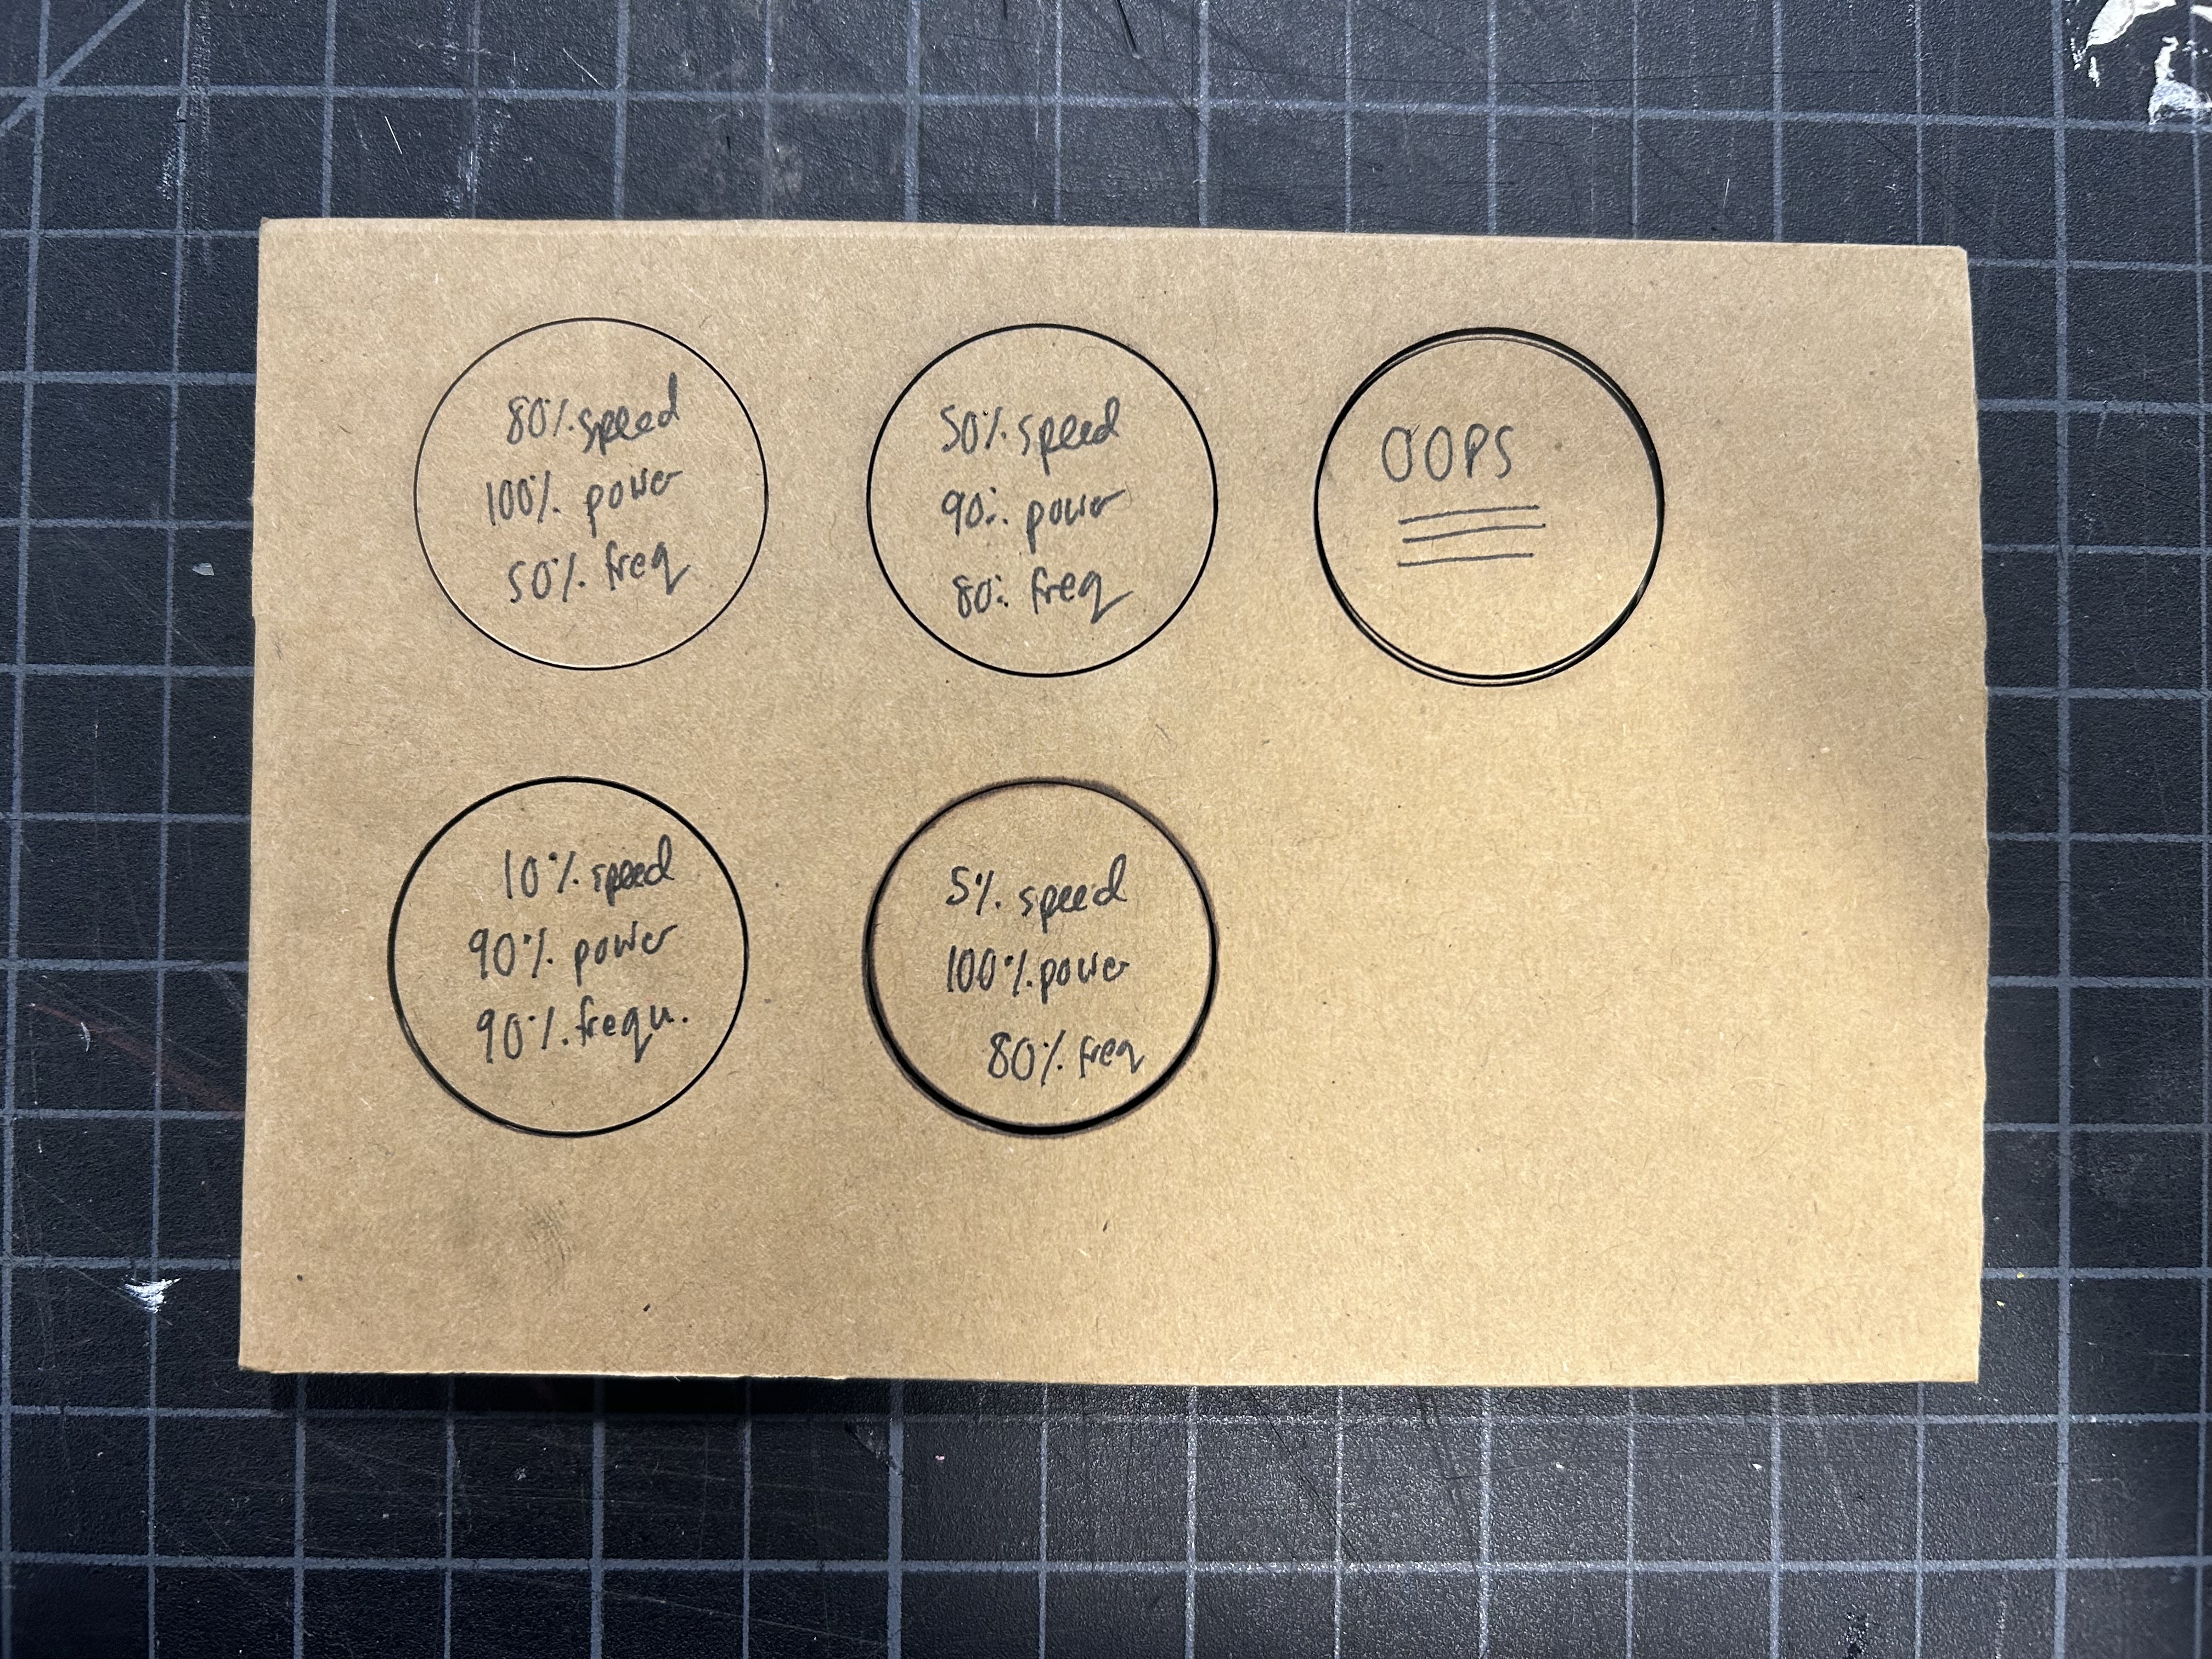 80% speed
100% power
50% freq
50% speed
90% power
80% freq
OOPS
10% speed
90% power
90% frequ.
5% speed
100% power
80% freq